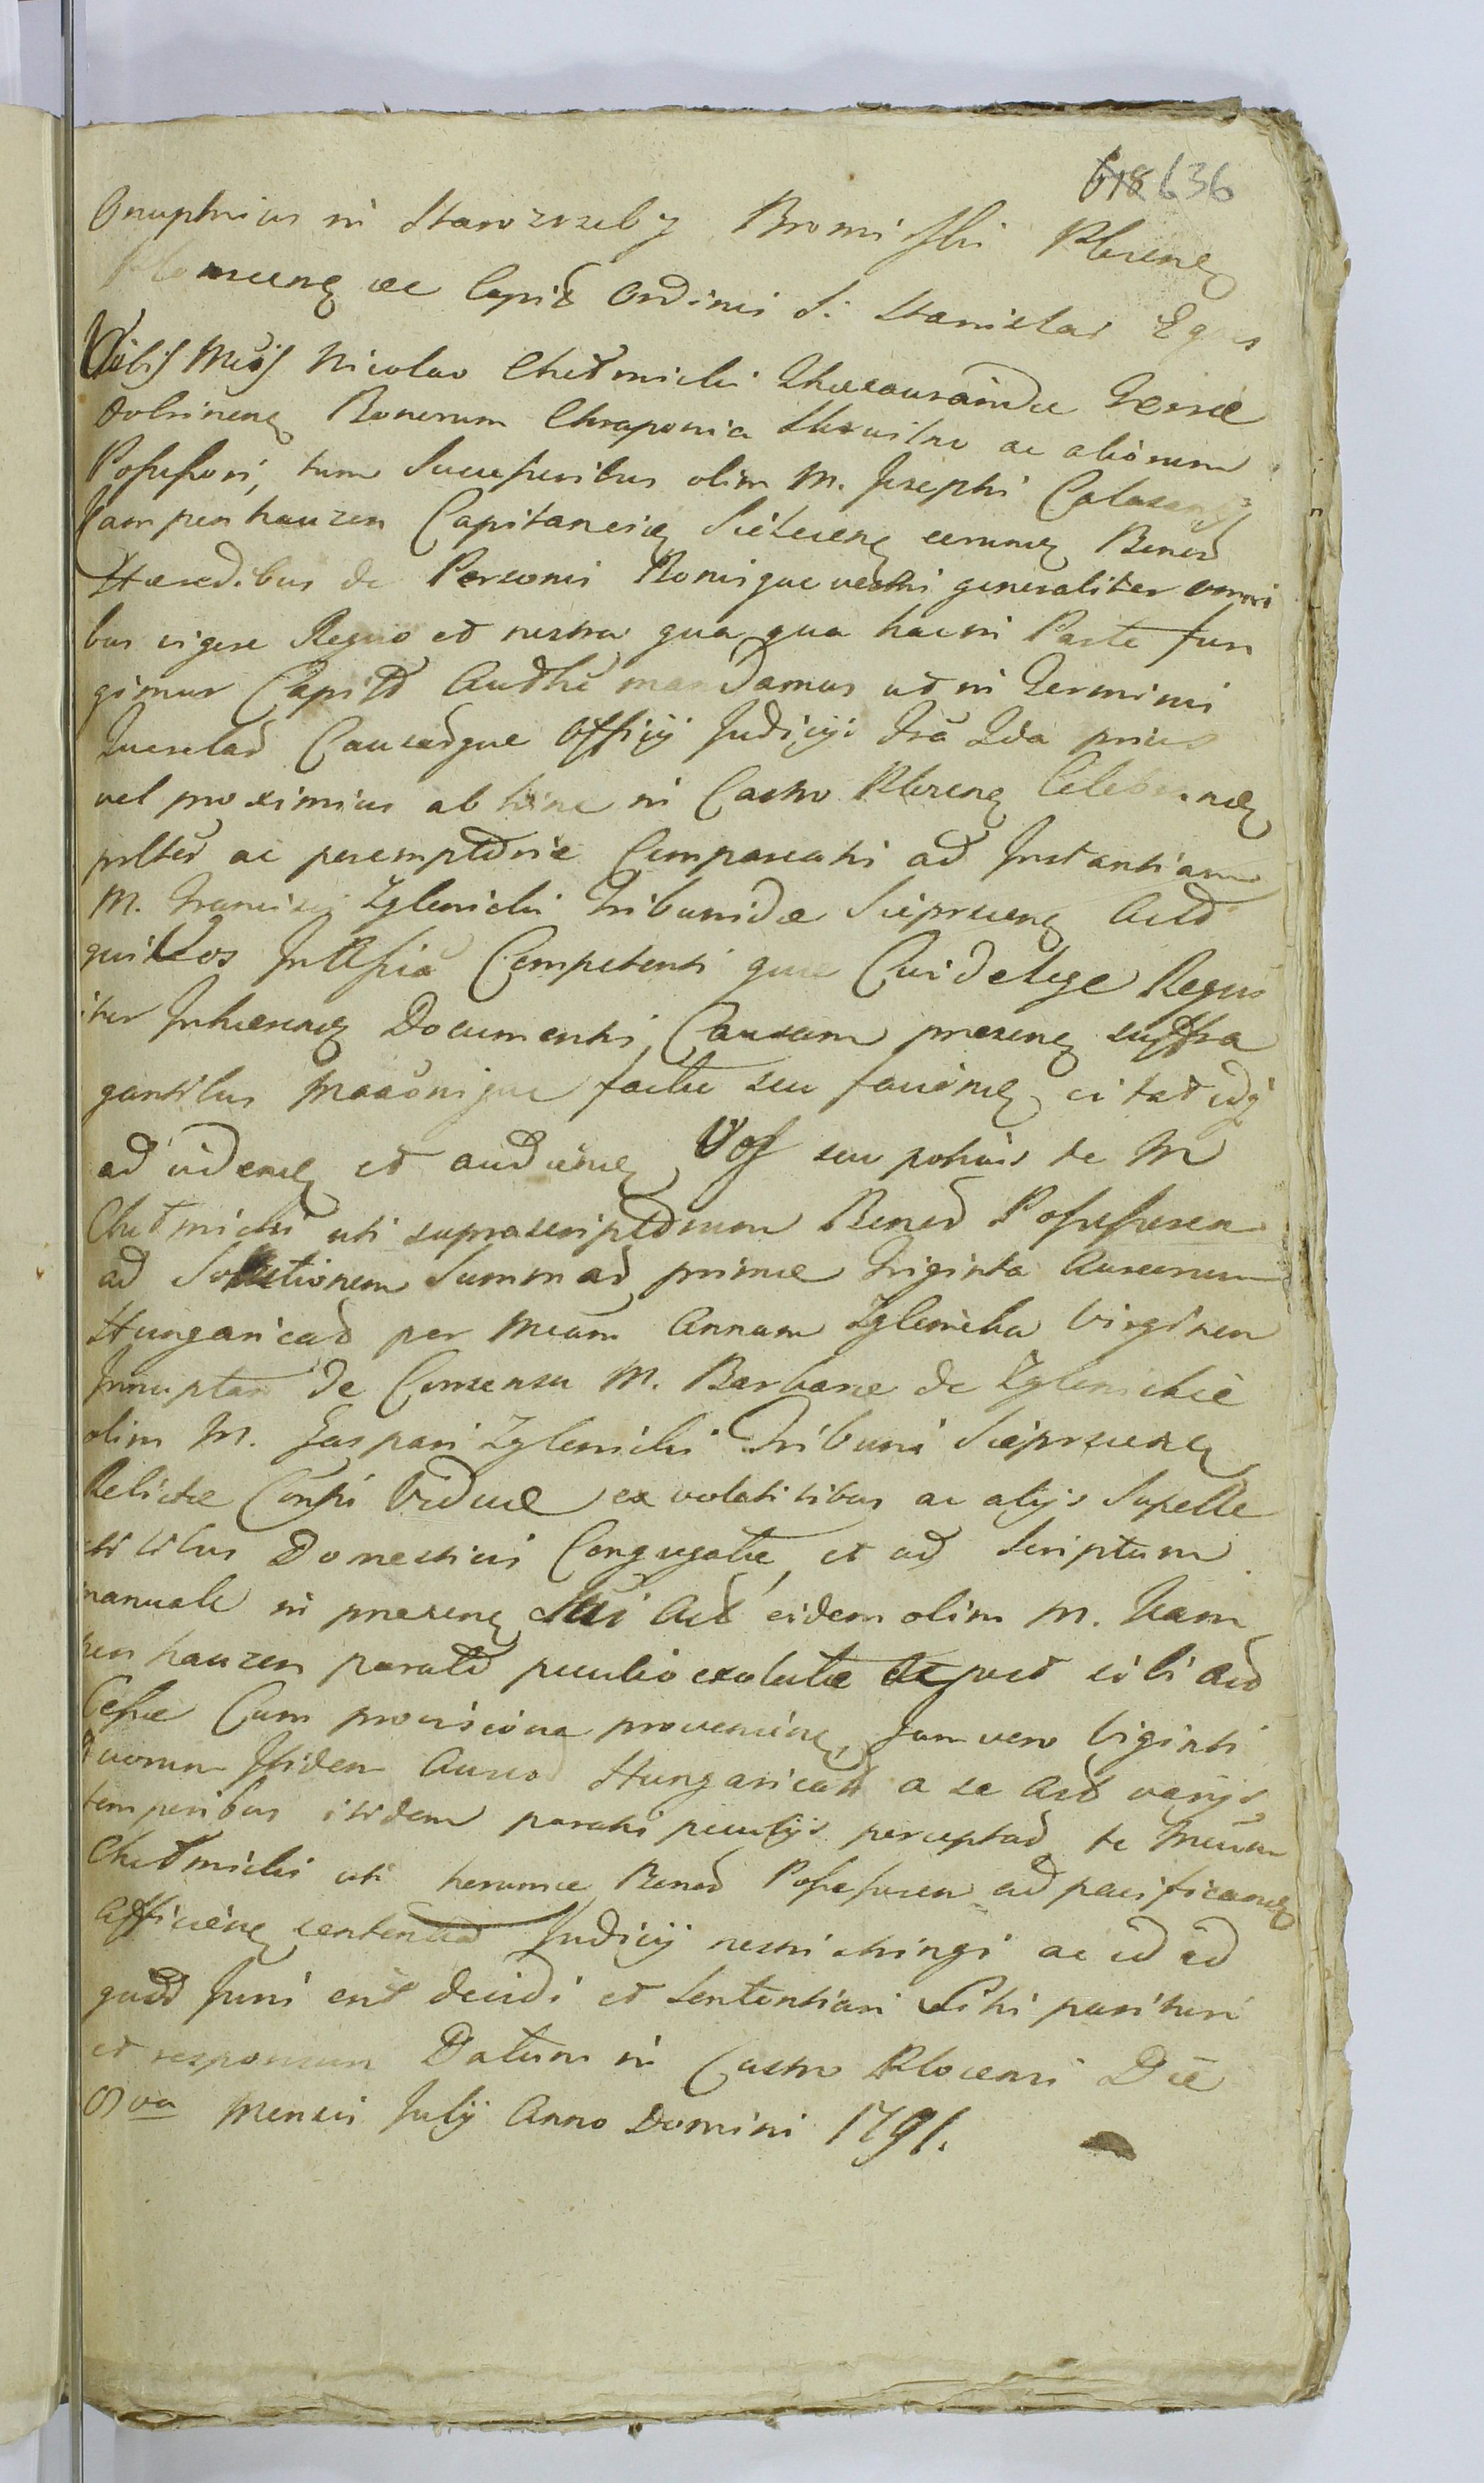 618 636
Onuphrius in Starozreby Bromiski Plocens
Plonscens ac Capit Ordinis S. Stanislai Eques
Vobis Mcis Nicolao Chełmicki Thesauraridae Terrae
Dobrinens Bonorum Chraponia Skrwilno ac aliorum
Possessori, tum Successoribus olim M. Josephi Calasanzs
Kampenhauzen Capitanei Sielecens eorumq Bonor
Haeredibus de Personis Bonisque vestris generaliter omni
bus vigore Regio et nostra qua qua hac in Parte fun
gimur Capitt Autthe mandamus ut in Terminis
Querelar Causarque Officij Judicij Tra Lda prius
vel proximius ab hinc in Castro Plocens Celebranns
prlter ac peremptorie Compareatis ad Instantiam
M. Francisci Zglenicki Tribunidae Sieprscens Act
qui Vos competenti que Cuidelege Regus
iter Inhaerens Documentis, Causam praesens suffra
gantibus Maaonisque factu seu faciens citat idq
ad videns et audiens Vos seu potius te M
Chełmicki uti suprascriptorum Bonor Possessorem
ad Solutionem Summar primae Triginta Aureorum
Hungaricar per Mcam Annam Zglenicka Virginem
Innuptam de Consensu M. Barbarae de Zglenickie
olim M. Gaspari Zglenicki Tribuni Sieprscens
Relictae Conspi Viduae ex victatitibus ac alijs Supelle
ctilibus Domesticis Congregatae, et ad Scriptum
manuale in praesens Sui Act eidem olim M. Kam
pen hauzen parato peculio exolutae ac post sibi Act
Cessae Cum provisione proveniens, tum vero Viginti
duorum Itidem Aureor Hungaricar a se Act varijs
temporibus itidem paratis peculijs perceptar te Mcum
Chełmicki uti horumce Bonor Possessorem ad pacificans
Afficiens sententia Judicij nostri stringi ac id id
quod Juris erit decidi et Sententiari Sitis parituri
et responsuri Datum in Castro Plocensi Die
8va Mensis Julij Anno Domini 1791.